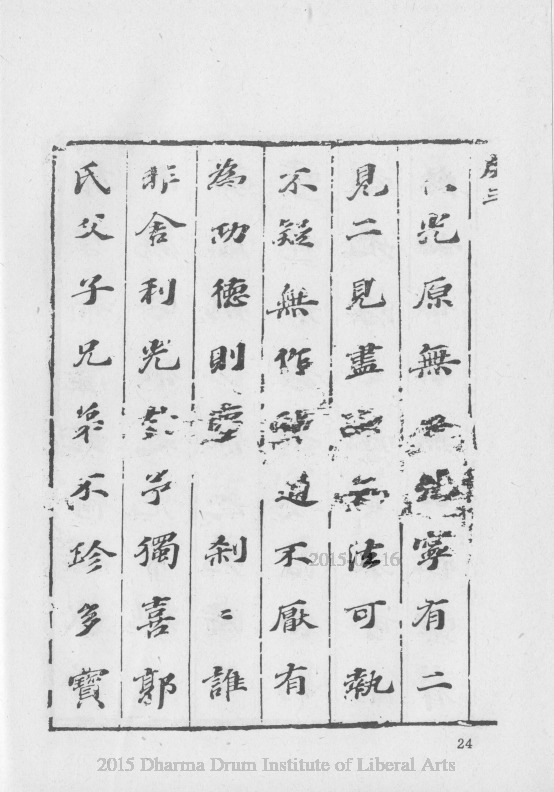 原無寧有二
見二見盡法可執
不疑無作道不厭有
為功德則塵剎〻誰
非舍利光於予獨喜郭
氏父子兄弟不珍多寶
24
2015 Dharma Drum Institute of Liberal Arts